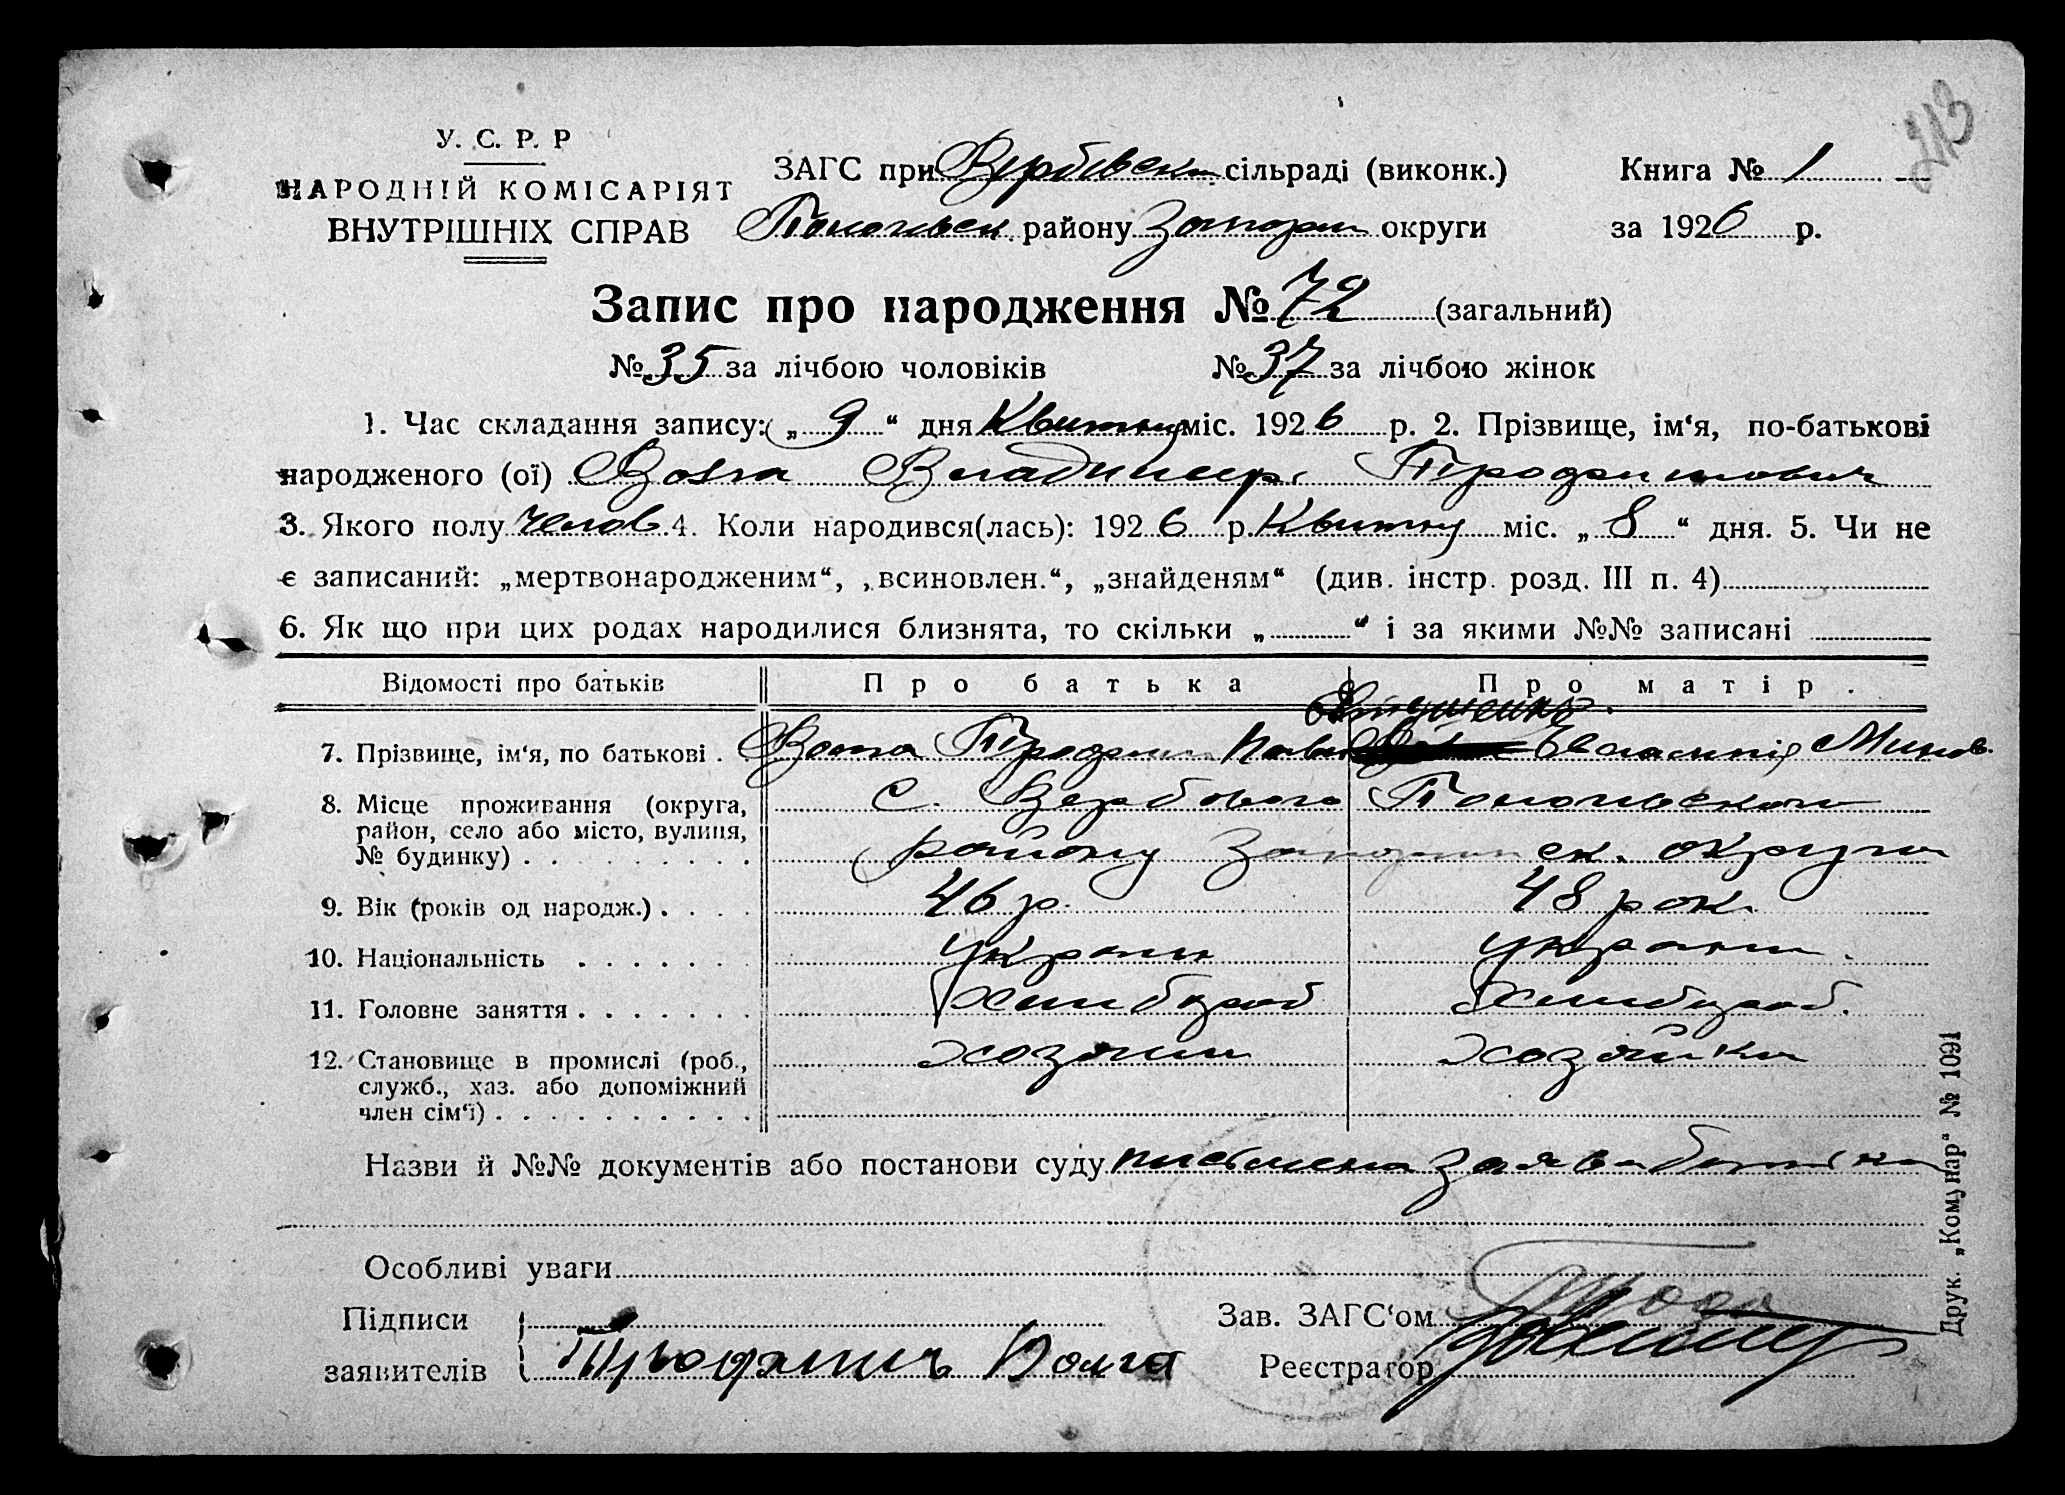 213
У. С. Р. Р
НАРОДНІЙ КОМІСАРІЯТ
ВНУТРІШНІХ СПРАВ
ЗАГС при Вербівськ. сільраді (виконк.) Книга № 1
району округи за 1926 р.
Запис про народження № 72 (загальний)
№ 35 за лічбою чоловіків № 37 за лічбою жінок
1. Час складання запису: „ 9 “ дня Квитня міс. 1926 р. 2. Прізвище, ім‘я, по-батькові
народженого (ої) Волга Владимир Трофимович
3. Якого полу челов 4. Коли народився(лась): 1926 р. Квитня міс. „ 8 “ дня. 5. Чи не
є записаний: „мертвонародженим“, „всиновлен.“, „знайденям“ (див. інстр. розд. III п. 4)
6. Як що при цих родах народилися близнята, то скільки „ “ і за якими №№ записані
Відомості про батьків Про батька Про матір.
7. Прізвище, ім‘я, по батькові . Волга Трофим
8. Місце проживання (округа, с. Вербового
район, село або місто, вулиця, району ск. округи
№ будинку) . . . . . . . . .
9. Вік (років од народж.) . . . . 46 р. 48 рок.
10. Національність . . . . . . . украин украин.
11. Головне заняття . . . . . . . Хлибороб Хлибороб.
12. Становище в промислі (роб., хозяин хозяйка
служб., хаз. або допоміжний
член сім‘ї) . . . . . . . . . .
Назви й №№ документів або постанови суду письмена заява
Особливі уваги
Підписи Зав. ЗАГС‘ом
заявителів Трофим Волга Реєстратор
Друк. „Комунар“ № 1091